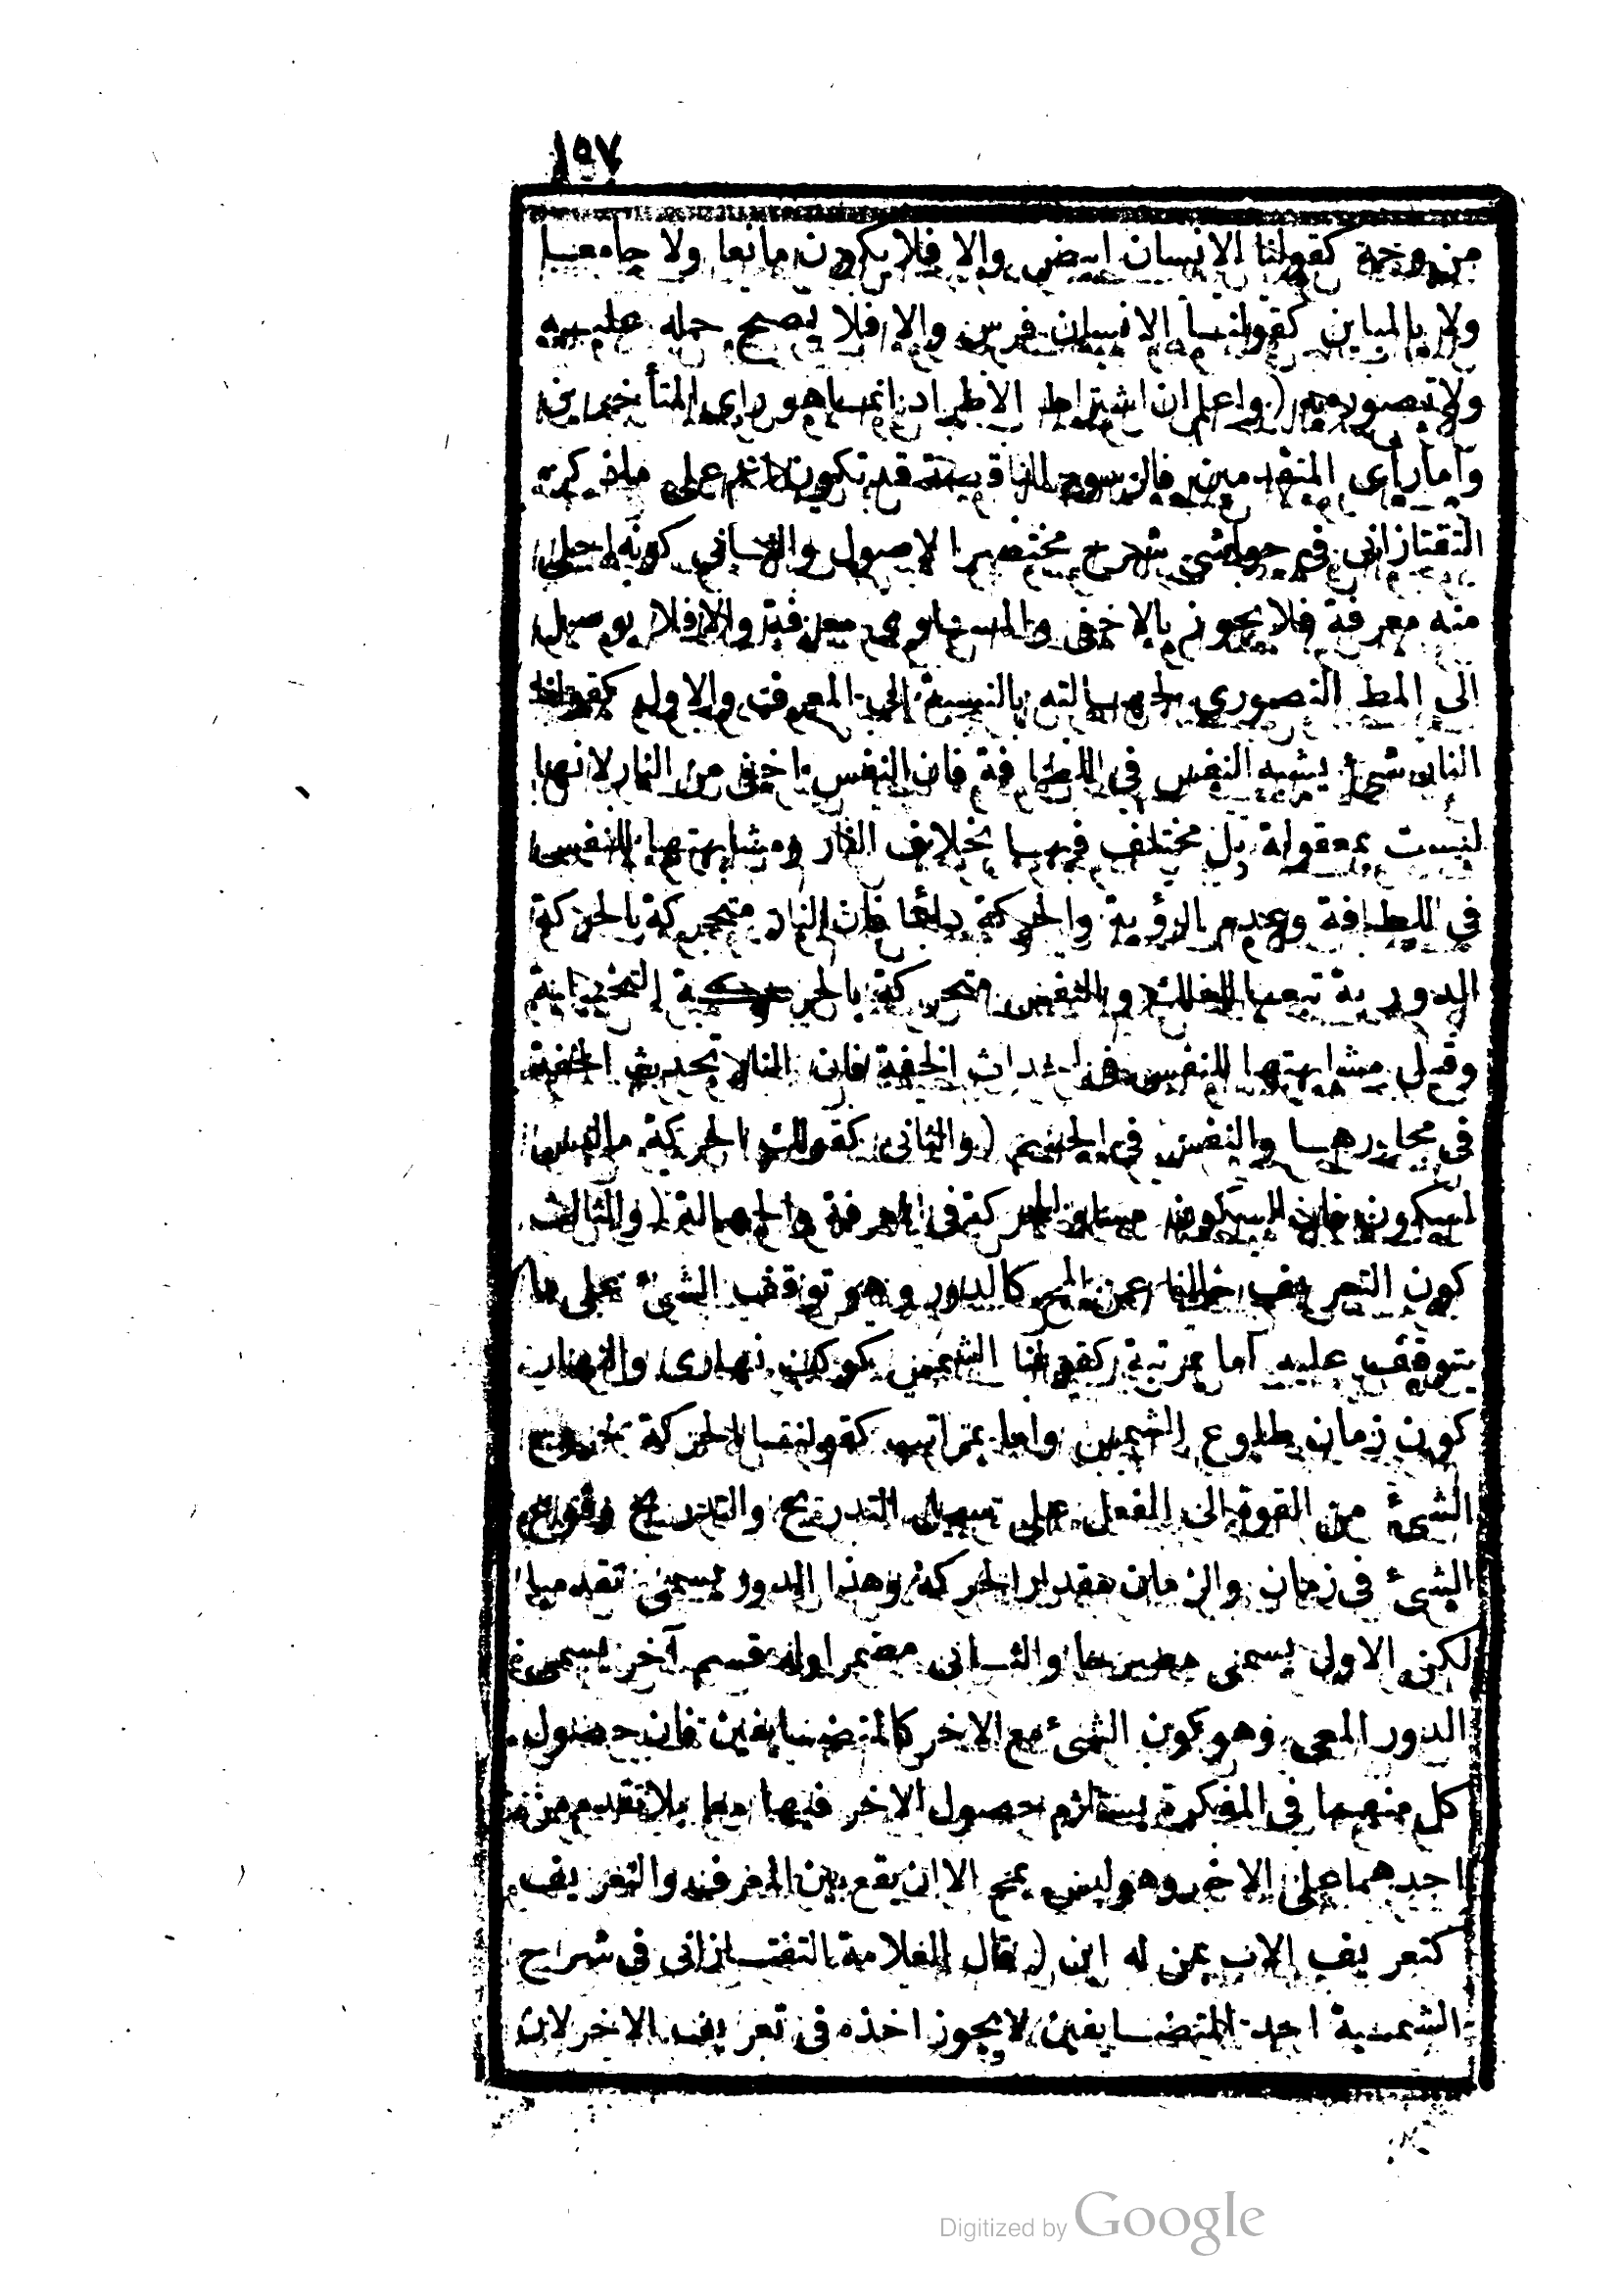 ١٥٧
من وجه كقولنا الانسان ابيض والا فلا يكون مانعا ولا جامعا
ولا بالمباين كقولنا الانسان فرس والا فلا يصح حمله عليه
ولا تصوره (واعلم ان اشتراط الاطراد انما هو راى المتأخرين
وأما رأى المتقدمين فالرسوم الناقصة قد تكون اعم على ماذكره
التفتازانى فى حواشى شرح مختصر الاصول والثانى كونه اجلى
منه معرفة فلا يجوز بالاخفى والمساوى معرفة والا فلا يوصل
الى المط التصورى لجهالته بالنسبة الى المعرف والاول كقولنا
النار شئ يشبه النفس فى اللطافة فان النفس اخفى من النار لانها
ليست بمعقولة بل مختلف فيها بخلاف النار ومشابهتها للنفس
فى اللطافة وعدم الرؤية والحركة دائما فان النار متحركة بالحركة
الدورية تبعا للفلك والنفس متحركة بالحركة التخيلية
وقيل مشابهتها للنفس فى احداث الخفة فان النار تحدث الخفة
فى مجاورها والنفس فى الجسم (والثانى كقولك الحركة ماليس
بسكون فان السكون مساو للحركة فى المعرفة والجهالة (والثالث
كون التعريف خاليا عن المح كالدور وهو توقف الشئ على ما
يتوقف عليه اما بمرتبة كقولنا الشمس كوكب نهارى والنهار
كون زمان طلوع الشمس واما بمراتب كقولنا الحركة خروج
الشئ من القوة الى الفعل على سبيل التدريج والتدريج وقوع
الشئ فى زمان والزمان مقدار الحركة وهذا الدور يسمى تقدميا
لكن الاول يسمى مصرحا والثانى مضمرا وله قسم آخر يسمى
الدور المعى وهو كون الشئ مع الاخر كالمتضايفين فان حصول
كل منهما فى المفكرة يستلزم حصول الاخر فيها معا بلا تقدم من
احدهما على الاخر وهو ليس بمح الا ان يقع بين المعرف والتعريف
كتعريف الاب بمن له ابن (قال العلامة التفتازانى فى شرح
الشمسية احد المتضايفين لا يجوز اخذه فى تعريف الاخر لان
Digitized by Google